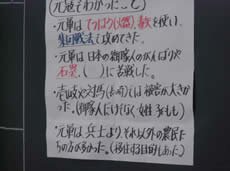 元寇でわかったこと
・元軍はてつはう(火器)、毒を使い、
集団戦法で攻めてきた。
・元軍は日本の御家人のがんばりや
石塁、( )に苦戦した。
・壱岐や対馬は被害が大きか
った。(御家人だけでなく女性 子ども)
・元軍は兵士より、それ以外の農民た
ちの方が多かった。(移住する目的もあった)